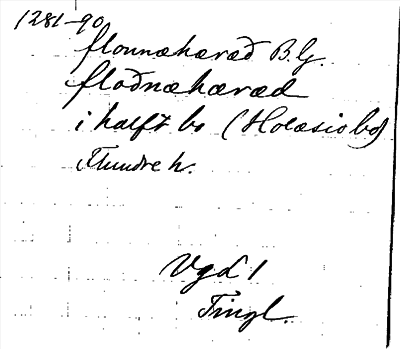 1281-90
flonnæhæræð B.G.
floðnæhæræd
i halft bo (Holæsio bo)
Flundre h.
Vgd 1
Tingl.